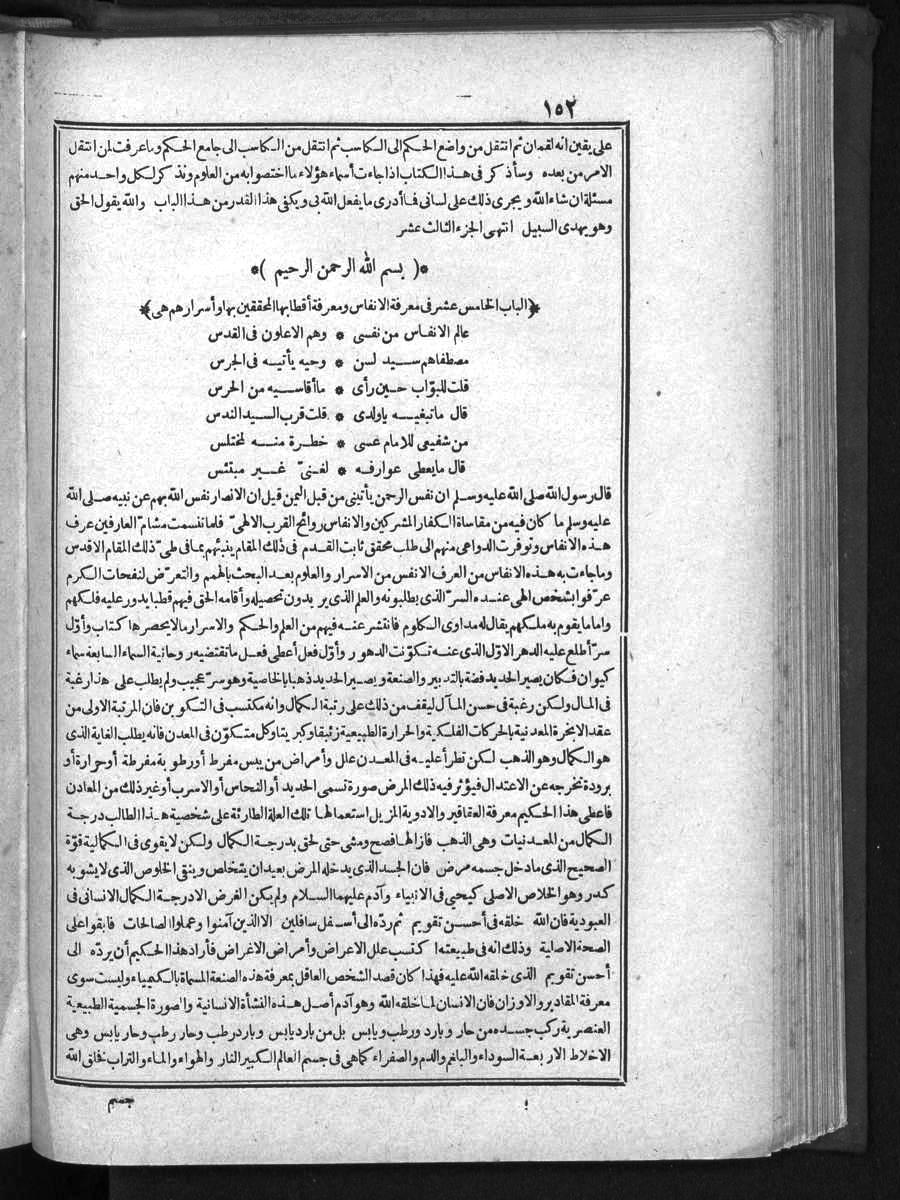 ١٥٢
على يقين انه لقمان ثم انتقل من واضع الحكم الى الكاسب ثم انتقل من الكاسب الى جامع الحكم وما عرفت لمن انتقل
الامر من بعده وسأذكر فى هذا الكتاب اذا جاءت أسماء هؤلاء ما اختصوا به من العلوم ونذكر لكل واحد منهم
مسئلة ان شاء الله ويجرى ذلك على لسانى فما أدرى ما يفعل الله بى ويكفى هذا القدر من هذا الباب والله يقول الحق
وهو يهدى السبيل انتهى الجزء الثالث عشر
*( بسم الله الرحمن الرحيم )*
﴿الباب الخامس عشر فى معرفة الانفاس ومعرفة أقطابها المحققين بها وأسرارهم هى﴾
عالم الانفاس من نفسى * وهم الاعلون فى القدس
مصطفاهم سيد لسن * وحيه يأتيه فى الجرس
قلت للبوّاب حين رأى * ما أقاسيه من الحرس
قال ما تبغيه ياولدى * قلت قرب السيد الندس
من شفيعى للامام عسى * خطرة منه لمختلس
قال ما يعطى عوارفه * لغنىّ غير مبتئس
قال رسول الله صلى الله عليه وسلم ان نفس الرحمن يأتينى من قبل اليمن قيل ان الانصار نفس الله بهم عن نبيه صلى الله
عليه وسلم ما كان فيه من مقاساة الكفار المشركين والانفاس روائح القرب الالهىّ فلما تنسمت مشامّ العارفين عرف
هذه الانفاس وتوفرت الدواعى منهم الى طلب محقق ثابت القدم فى ذلك المقام ينبئهم بما فى طىّ ذلك المقام الاقدس
وما جاءت به هذه الانفاس من العرف الانفس من الاسرار والعلوم بعد البحث بالهمم والتعرّض لنفحات الكرم
عرّفوا بشخص الهى عنده السرّ الذى يطلبونه والعلم الذى يريدون تحصيله وأقامه الحق فيهم قطبا يدور عليه فلكهم
واماما يقوم به ملكهم يقال له مداوى الكلوم فانتشر عنه فيهم من العلم والحكم والاسرار ما لا يحصرها كتاب وأوّل
سرّ أطلع عليه الدهر الاوّل الذى عنه تكوّنت الدهور وأوّل فعل أعطى فعل ما تقتضيه روحانية السماء السابعة سماء
كيوان فكان يصير الحديد فضة بالتدبير والصنعة ويصير الحديد ذهبا بالخاصية وهو سرّ عجيب ولم يطلب على هذا رغبة
فى المال ولكن رغبة فى حسن المآل ليقف من ذلك على رتبة الكمال وانه مكتسب فى التكوين فان المرتبة الاولى من
عقد الابخرة المعدنية بالحركات الفلكية والحرارة الطبيعية زئبقا وكبريتا وكل متكوّن فى المعدن فانه يطلب الغاية الذى
هو الكمال وهو الذهب لكن تطرأ عليه فى المعدن علل وأمراض من يبس مفرط أو رطوبة مفرطة أو حرارة أو
برودة تخرجه عن الاعتدال فيؤثر فيه ذلك المرض صورة تسمى الحديد أو النحاس أو الاسرب أو غير ذلك من المعادن
فاعطى هذا الحكيم معرفة العقاقير والادوية المزيل استعمالها تلك العلة الطارئة على شخصية هذا الطالب درجة
الكمال من المعدنيات وهى الذهب فازالها فصح ومشى حتى لحق بدرجة الكمال ولكن لا يقوى فى الكمالية قوّة
الصحيح الذى ما دخل جسمه مرض فان الجسد الذى يدخله المرض بعيد ان يتخلص وينقى الخلوص الذى لا يشوبه
كدر وهو الخلاص الاصلى كيحيى فى الانبياء وآدم عليهما السلام ولم يكن الغرض الا درجة الكمال الانسانى فى
العبودية فان الله خلقه فى أحسن تقويم ثم ردّه الى أسفل سافلين الا الذين آمنوا وعملوا الصالحات فابقوا على
الصحة الاصلية وذلك انه فى طبيعته اكتسب علل الاعراض وأمراض الاغراض فأراد هذا الحكيم أن يردّه الى
أحسن تقويم الذى خلقه الله عليه فهذا كان قصد الشخص العاقل بمعرفة هذه الصنعة المسماة بالكيمياء وليست سوى
معرفة المقادير والاوزان فان الانسان لما خلقه الله وهو آدم أصل هذه النشأة الانسانية والصورة الجسمية الطبيعية
العنصرية ركب جسده من حار وبارد ورطب ويابس بل من بارد يابس وبارد رطب وحار رطب وحار يابس وهى
الاخلاط الاربعة السوداء والبلغم والدم والصفراء كما هى فى جسم العالم الكبير النار والهواء والماء والتراب فخلق الله
جسم